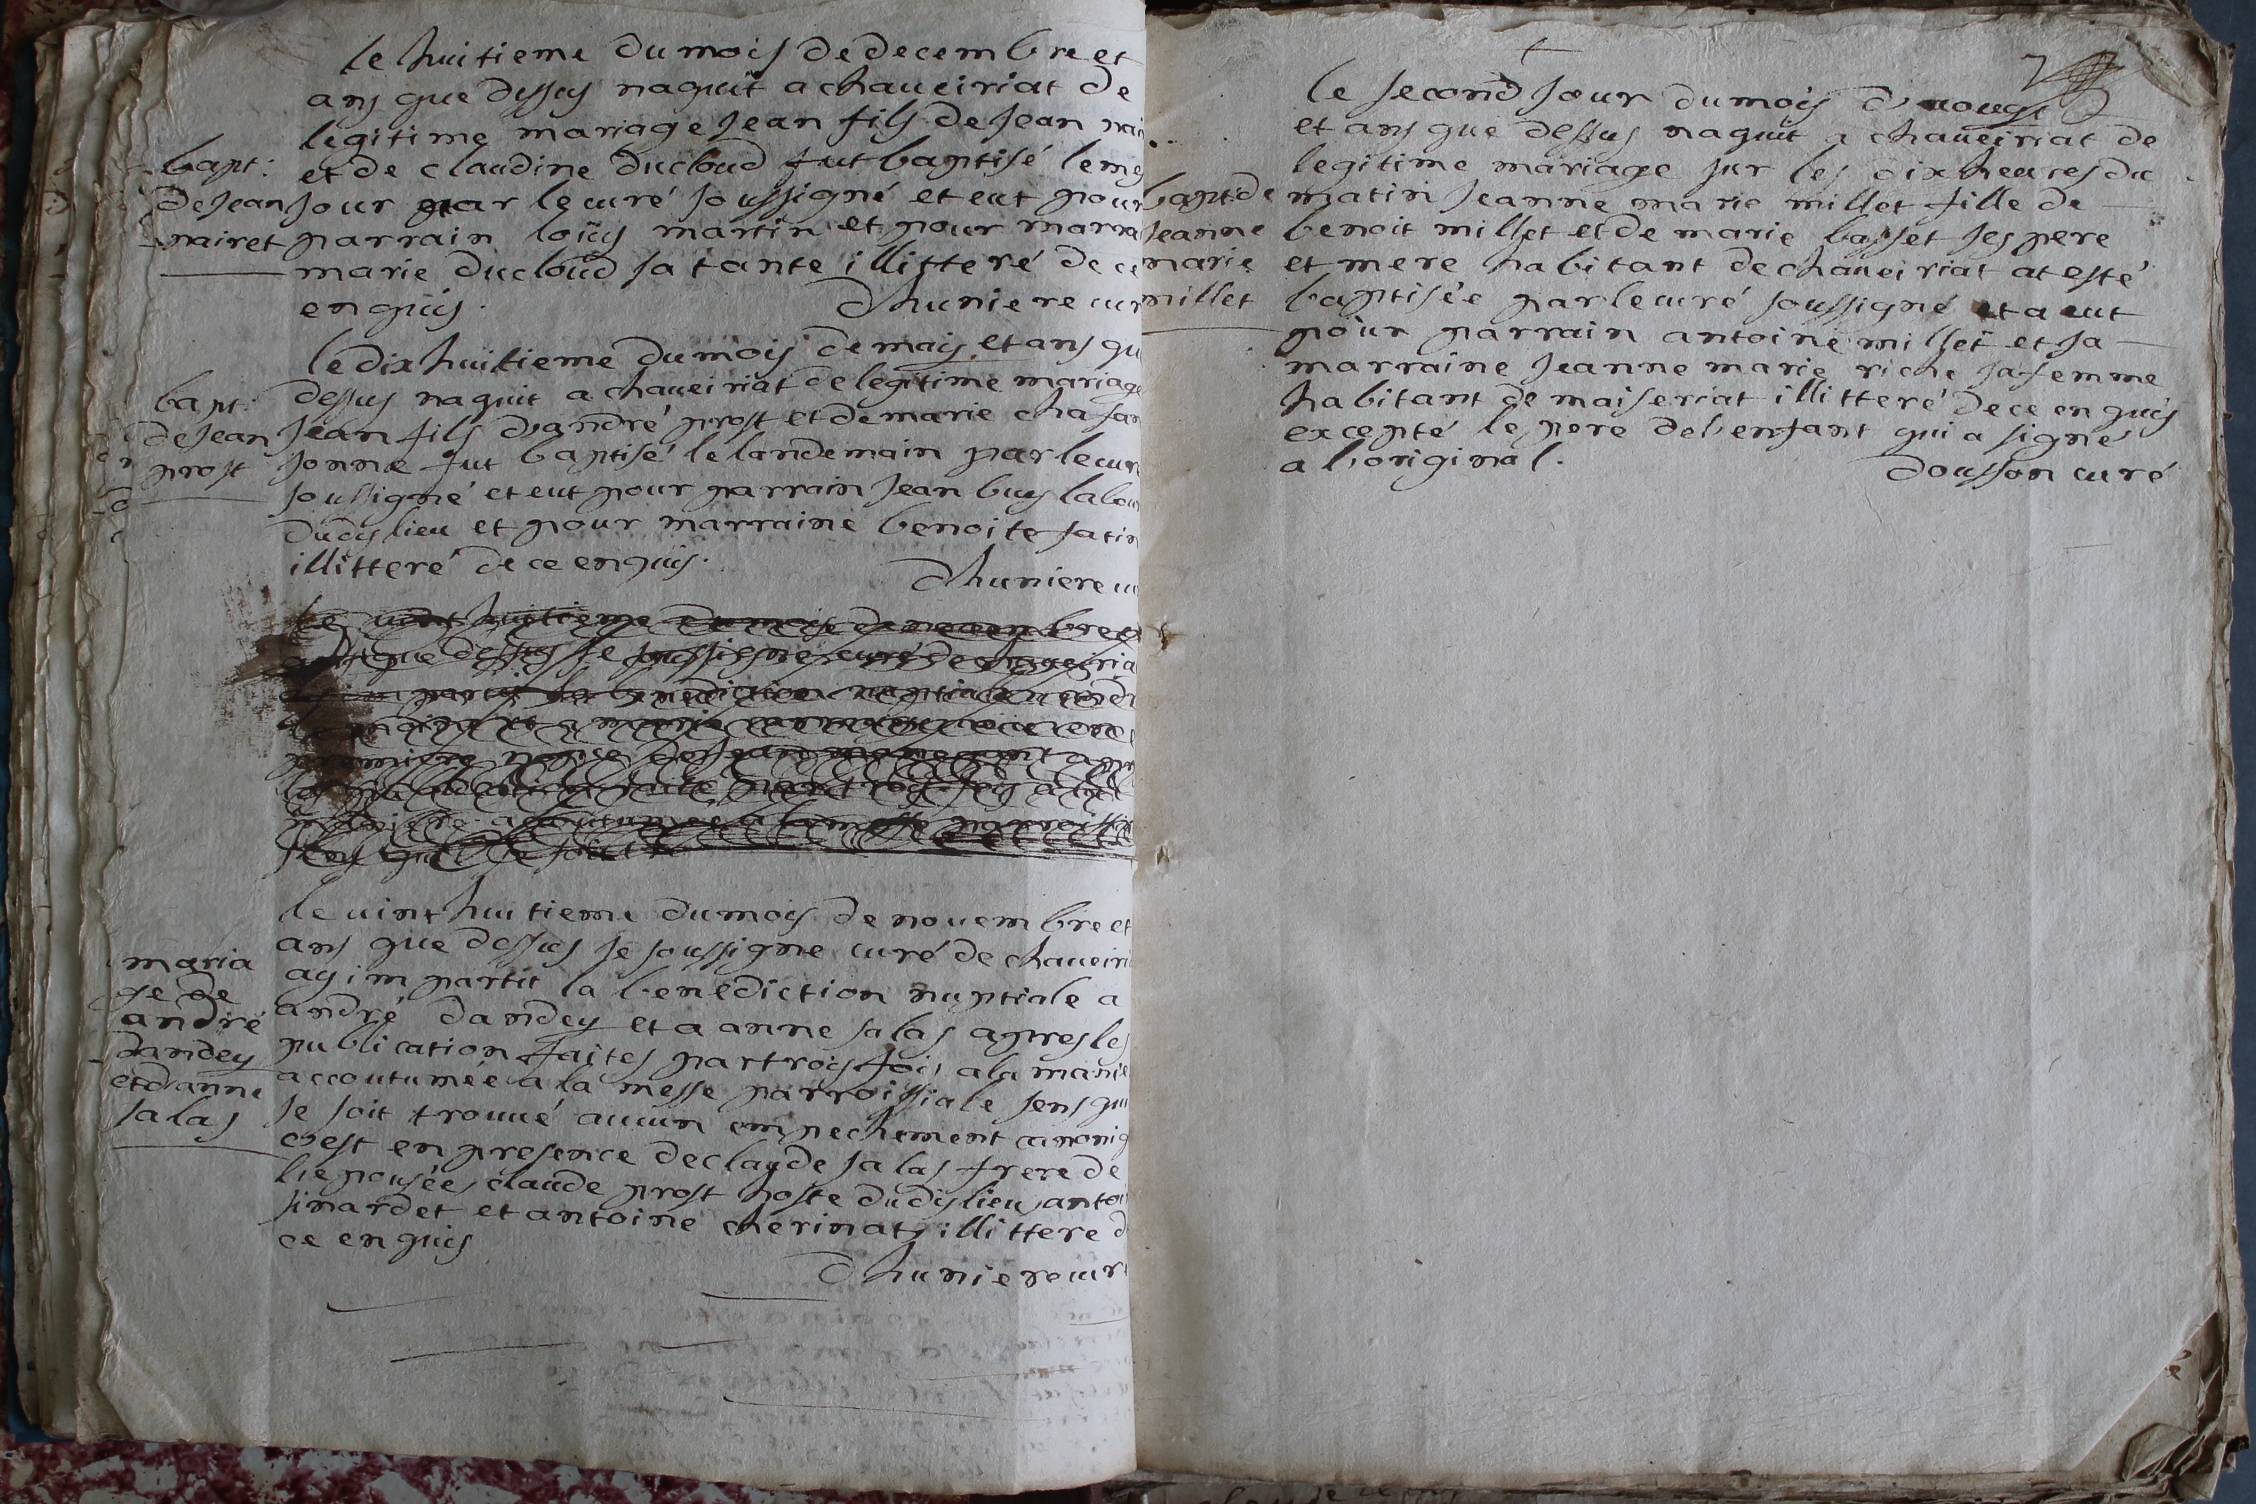 le huitieme du mois de decembre et
ans que dessus naquit a chaueiriat de
legitime mariage Jean fils de Jean nai
bapt:
de Jean
nairet
et de claudine ducloud fut baptisé le mes
Jour par le curé soussigné et eut pour
parrain loüis martin et pour marra
marie ducloud sa tante illitteré de ce
enquis.
dhuniere cur
le dix huitieme du mois de mais et ans qu
dessus naquit a chaueiriat de legitime mariage
bapt:
de Jean
prost
Jean fils d'andré prost et de marie chasan
sonne fut baptisé le landemain par le cur
soussigné et eut pour parrain Jean buis labou
dudis lieu et pour marraine benoite satin
illitteré de ce enquis.
dhuniere cu
le uint huitieme du mois de nouembre et
ans que dessus Je soussigne curé de chaueiri
benediction nuptiale
le uint huitieme du mois de nouembre et
ans que dessus Je soussigne curé de chaueiri
maria
ge de
andré
dandey
et d'anne
salas
ay impartit la benediction nuptiale a
andré dandey et a anne salas apres les
publication faites par trois fois a la manie
accoutumée a la messe parroissiale sens qui
se soit trouué aucun empechement canoniq
c'est en presence de claude salas frere de
l'iepousée, claude prost hoste dudis lieu, antoi
sinardet et antoine cherinat, illittere d
ce enquis
dhuniere cur
le second Jour du mois d'auougst
et ans que dessus naquit a chaueiriat de
legitime mariage sur les dix heures du
bapt de
Jeanne
marie
millet
matin Jeanne marie millet fille de
benoit millet et de marie basset ses pere
et mere habitant de chaueiriat at esté
baptisée par le curé soussigné et a eut
pour parrain antoine millet et sa
marraine Jeanne marie riche sa femme
habitant de maiseriat illitteré de ce enquis
excepté le pere de l'enfant qui a signé
a l'original.
dousson curé